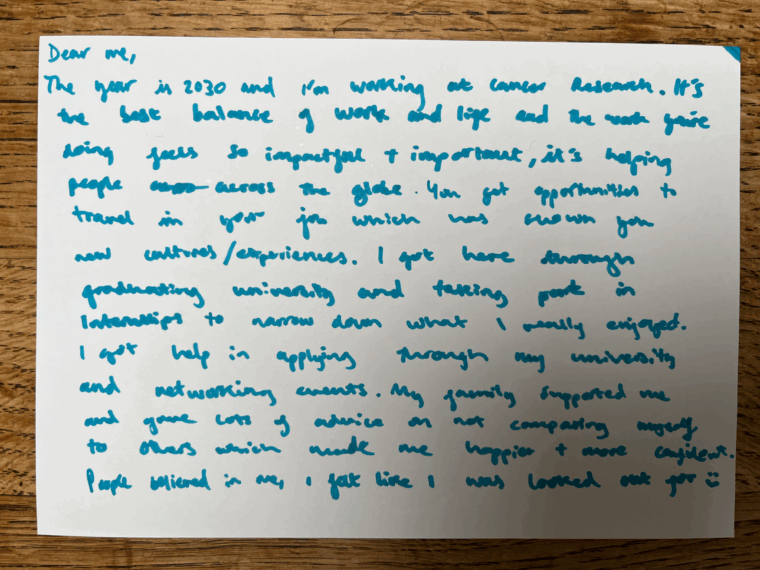 Dear me,
The year is 2030 and I'm working at Cancer Research. It's
the best balance of work and life and the work you're
doing feels so impactful + important, it's helping
people across the globe. You get opportunities to
travel in your job which has shown you
new cultures/experiences. I got here through
graduating university and taking part in
Internships to narrow down what I really enjoyed.
I got help in applying through my university
and networking events. My family supported me
and gave lots of advice on not comparing myself
to others which made me happier + more confident.
People believed in me, I felt like I was looked out for :)